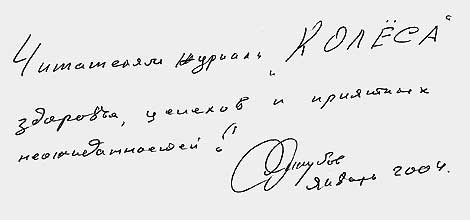 Читателям журнала „КОЛЁСА“
здоровья, успехов и приятных
неожиданностей!
январь 2004.